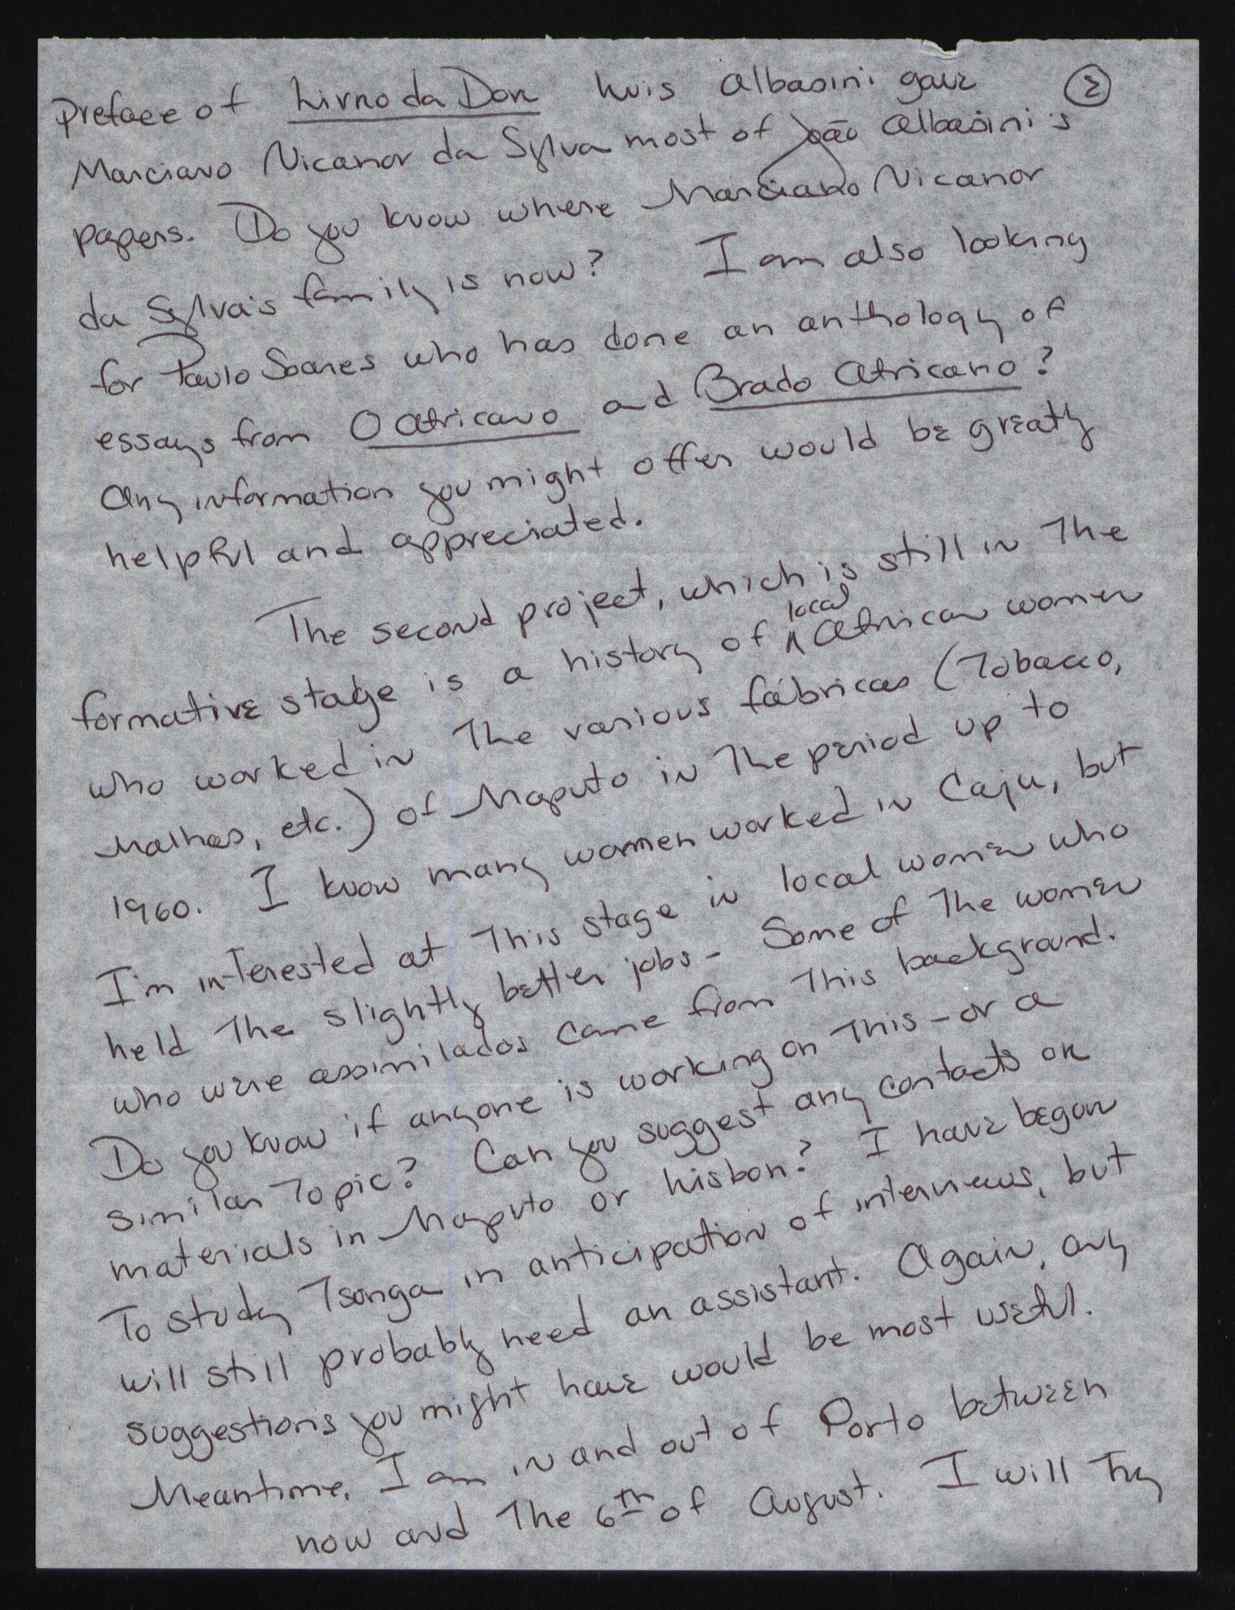 preface of Livro da Dor Luis Albasini gave (2)
Marciano Nicanor da Sylva most of João Albasini's
papers. Do you know where Marciano Nicanor
da Sylva's family is now? I am also looking
for Paulo Soares who has done an anthology of
essays from O Africano and Brado Africano?
Any information you might offer would be greatly
helpful and appreciated.
The second project, which is still in the
formative stage is a history of local African women
who worked in the various fábricas (Tobacco,
Malhas, etc.) of Maputo in the period up to
1960. I know many women worked in Caju, but
I'm interested at this stage in local women who
held the slightly better jobs - Some of the women
who were assimilados came from this background.
Do you know if anyone is working on this - or a
similar topic? Can you suggest any contacts or
materials in Maputo or Lisbon? I have begun
to study Tsonga in anticipation of interviews, but
will still probably need an assistant. Again, any
suggestions you might have would be most useful.
Meantime, I am in and out of Porto between
now and the 6th of August. I will try